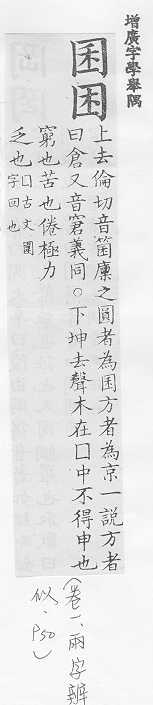 增廣字學舉隅
囷困
上去倫切音箘廩之圓者為囷方者為京一說方者
曰倉又音窘義同○下坤去聲木在囗中不得申也
窮也苦也倦極力
乏也囗古文圍
字回也
(卷一、兩字辨
似、P50)